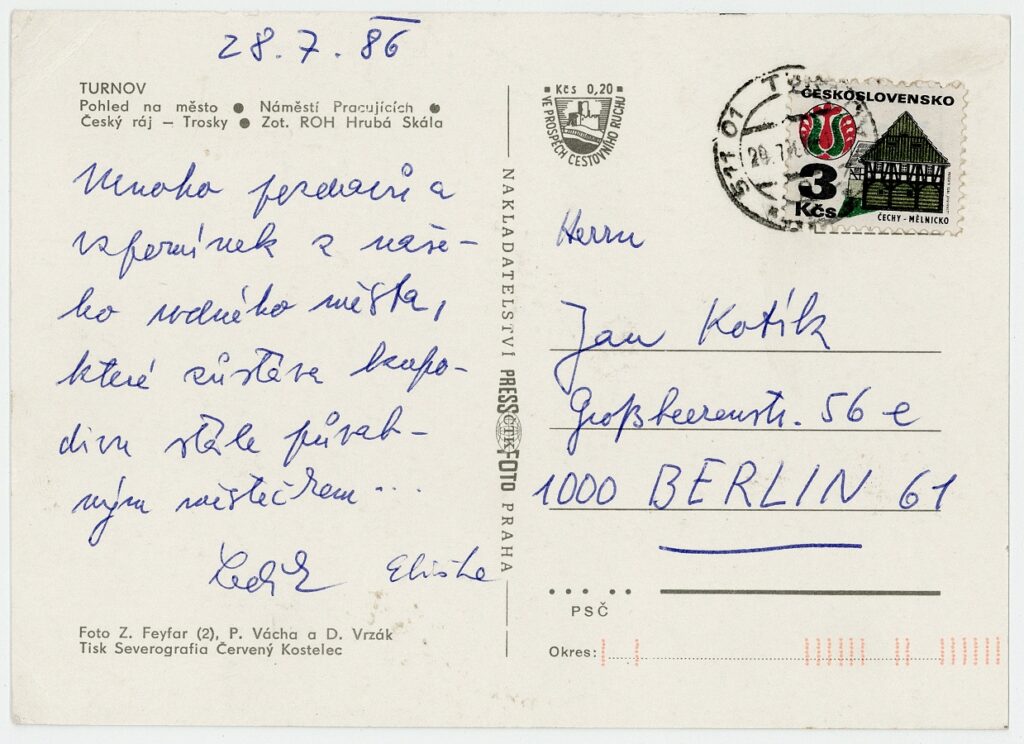 28.7.86
TURNOV
Pohled na město ● Náměstí Pracujících ●
Český ráj – Trosky ● Zot. ROH Hrubá Skála
Mnoho pozdravů a
vzpomínek z naše-
ho rodného města,
které zůstává kupo-
divu stále půvab-
ným městečkem...
Eliška
Foto Z. Feyfar (2), P. Vácha a D. Vrzák
Tisk Severografia Červený Kostelec
NAKLADATELSTVÍ PRESSFOTO PRAHA
ČTK
Kčs 0,20
VE PROSPĚCH CESTOVNÍHO RUCHU
511 01
29.7.
ČESKOSLOVENSKO
3
Kčs
ČECHY - MĚLNICKO
Herrn
Jan Kotík
Großbeerenstr. 56 e
1000 BERLIN 61
PSČ
Okres: